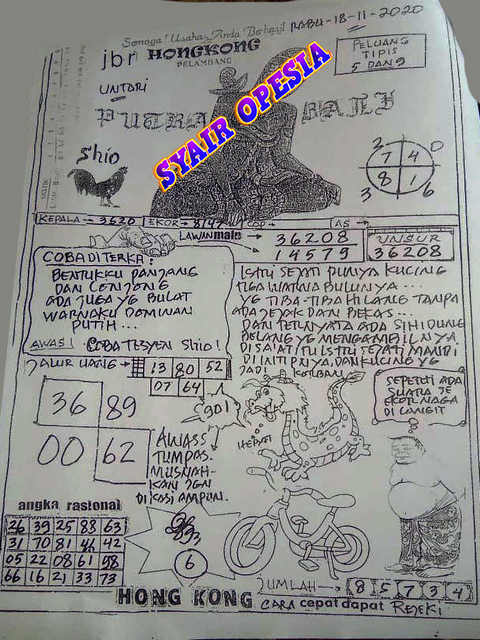 Semoga Usaha Anda Berhasil
RABU-18-11-2020
jbr HONGKONG
PELAMBANG
PELUANG
TIPIS
5 DAN 9
UNTARI
PUTRA BALI
SYAIR OPESIA
Shio
7 4
8 1
3 6
KEPALA → 3620 EKOR → 8147 COP → AS →
LAWAN main → 36208
14579
UNSUR
36208
COBA DITERKA:
BENTUKKU PANJANG
DAN LONJONG
ADA JUGA YG BULAT
WARNAKU DOMINAN
PUTIH...
AWAS! COBA TESYEN Shio!
ISTRI SEJATI PUNYA KUCING
TIGA WARNA BULUNYA...
YG TIBA-TIBA HILANG TANPA
ADA JEJAK DAN BEKAS...
DAN TERNYATA ADA SI HIDUNG
BELANG YG MENGAMBILNYA,
DI SAAT ITU ISTRI SEJATI MANDI
DI INTIPNYA, DAN KUCING YG
JADI KORBAN
JALUR UANG → 13 80 52
07 64
36 89
00 62
901
HEBAT!
SEPERTI ADA
SUARA DE
EKOR NAGA
DI LANGIT
AWASS
TUMPAS
MUSNAH-
KAN JGN
DIKASI AMPUN.
angka rasional
26 39 25 88 63
31 70 81 46 42
05 22 08 61 98
66 16 21 33 73
6
JUMLAH → 8 5 7 3 4
HONG KONG CARA cepat dapat REJEKI